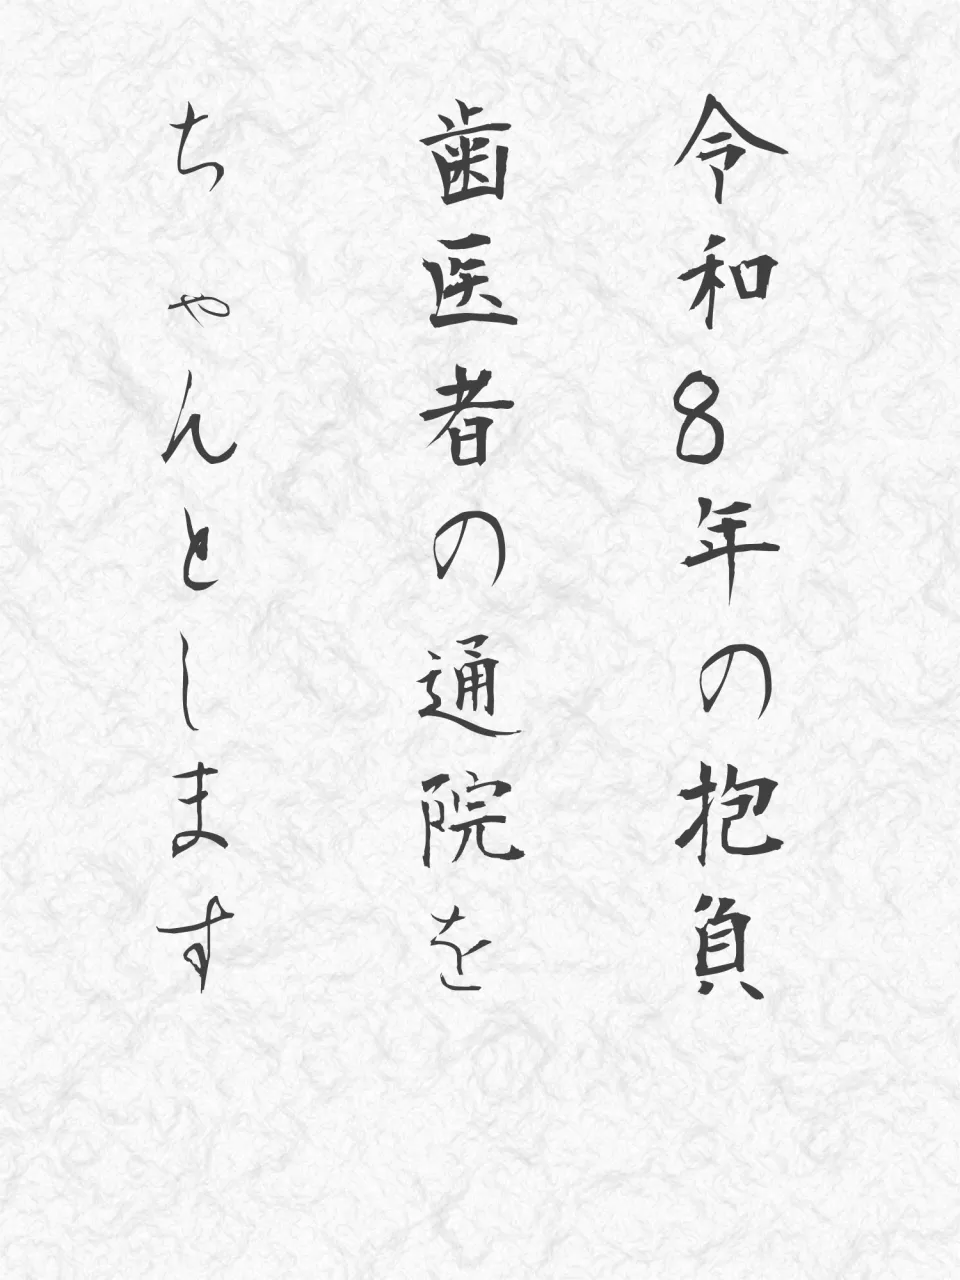 令和8年の抱負
歯医者の通院を
ちゃんとします